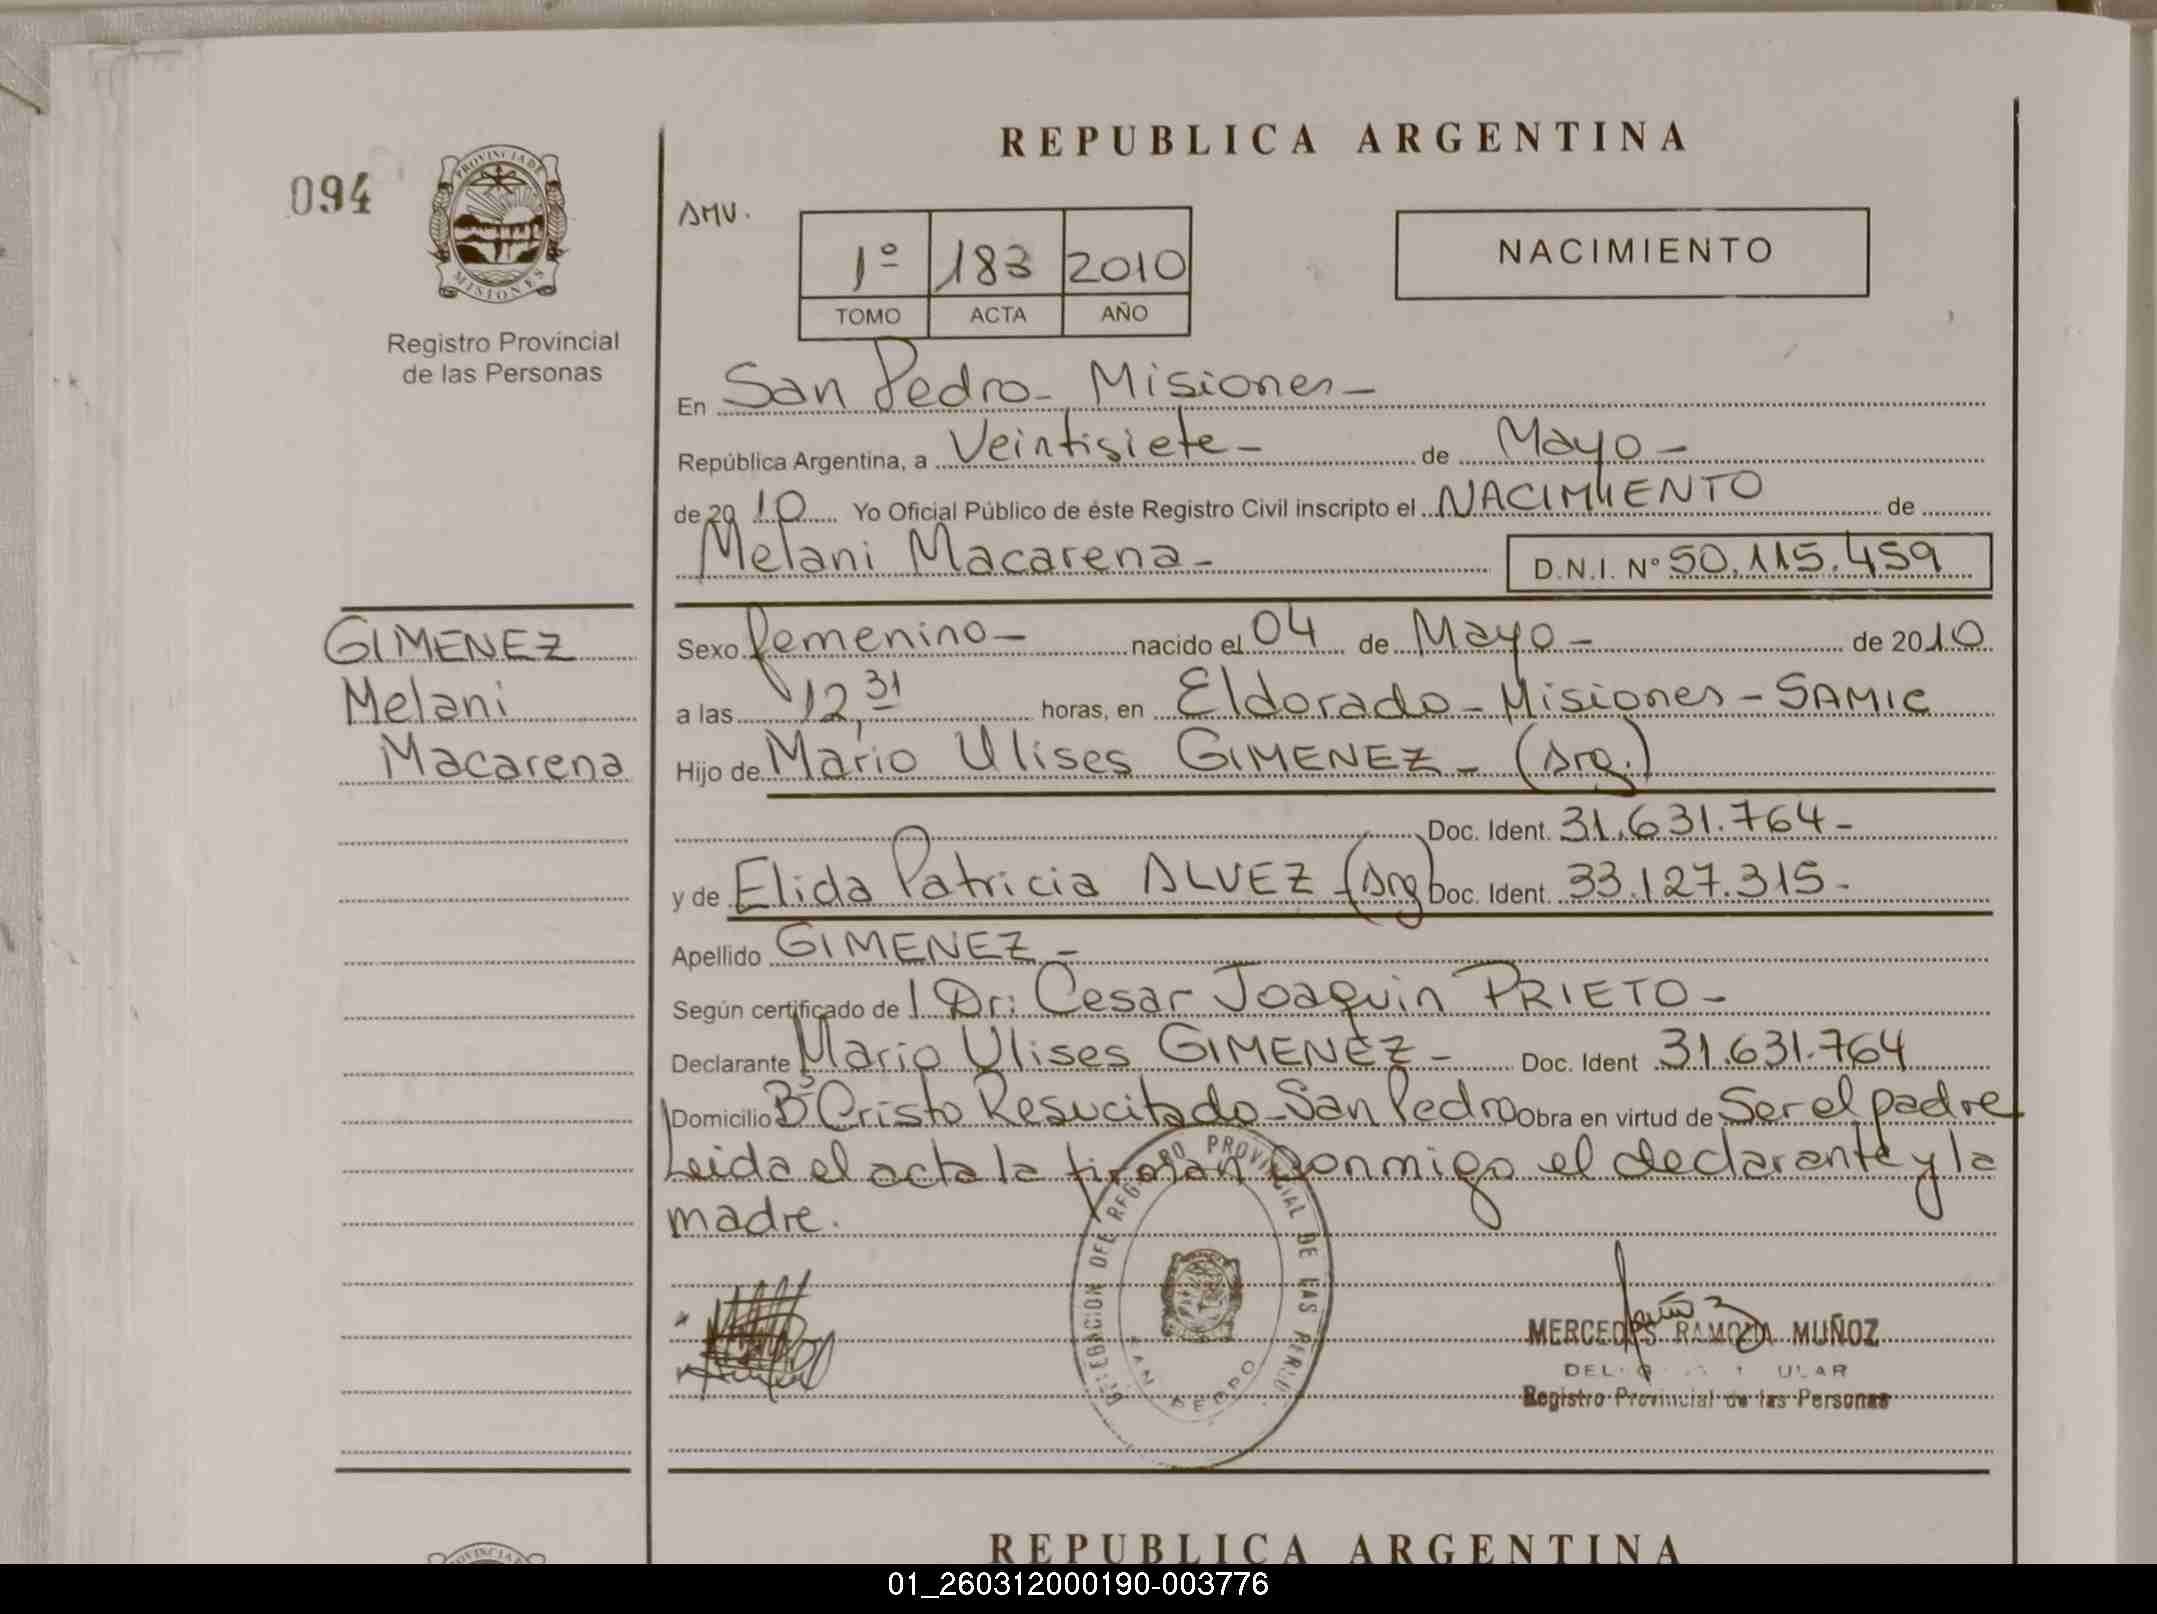 REPUBLICA ARGENTINA
094
PROVINCIA DE
MISIONES
Registro Provincial
de las Personas
AMV.
1º 183 2010
TOMO ACTA AÑO
NACIMIENTO
En San Pedro - Misiones -
República Argentina, a Veintisiete - de Mayo -
de 2010 Yo Oficial Público de éste Registro Civil inscripto el NACIMIENTO de
Melani Macarena - D.N.I. Nº 50.115.459
GIMENEZ
Melani
Macarena
Sexo femenino - nacido el 04 de Mayo - de 2010
a las 12,31 horas, en Eldorado - Misiones - SAMIC
Hijo de Mario Ulises GIMENEZ - (Arg.)
Doc. Ident. 31.631.764 -
y de Elida Patricia ALVEZ - (Arg) Doc. Ident. 33.127.315 -
Apellido GIMENEZ -
Según certificado de l Dr: Cesar Joaquin PRIETO -
Declarante Mario Ulises GIMENEZ - Doc. Ident 31.631.764
Domicilio Bº Cristo Resucitado - San Pedro Obra en virtud de Ser el padre
Leida el acta la firman conmigo el declarante y la
madre.
DELEGACION DEL REGISTRO PROVINCIAL DE LAS PERSO
SAN PEDRO
MERCEDES RAMONA MUÑOZ
Registro Provincial de las Personas
REPUBLICA ARGENTINA
01_260312000190-003776